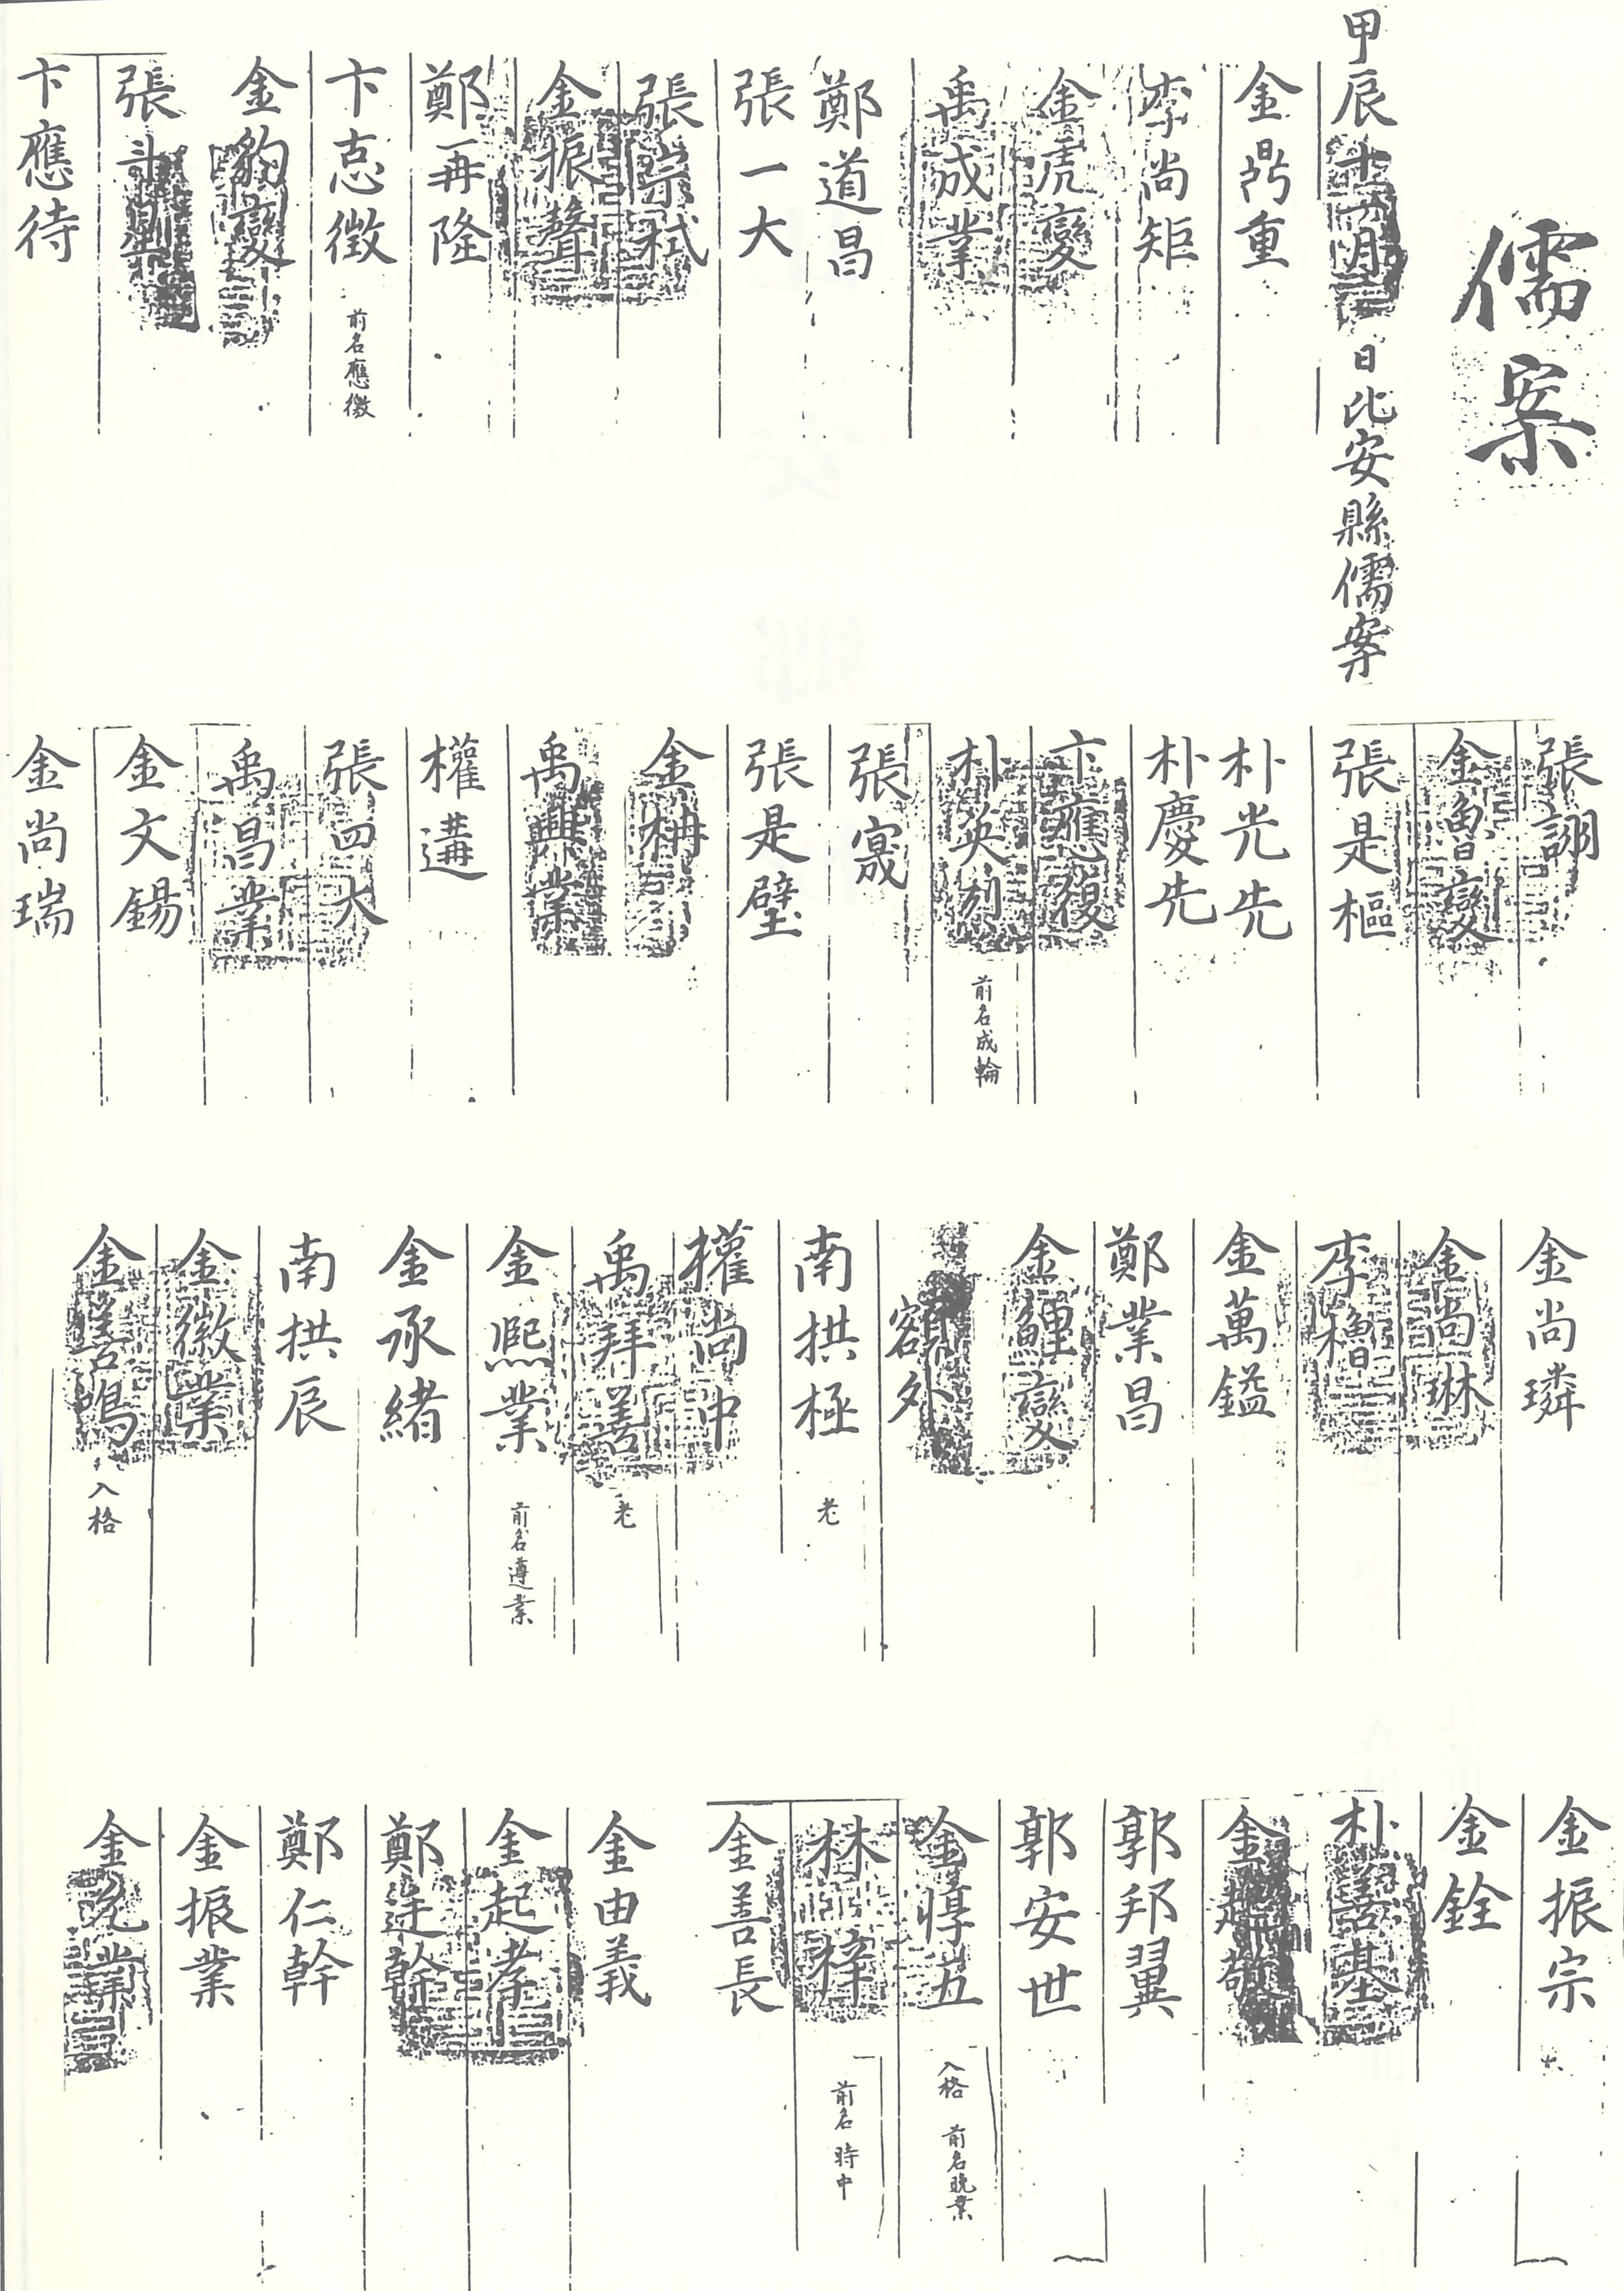 儒案
甲辰十一月 日比安縣儒案
金鼎重
李尚矩
金虎變
禹成業
鄭道昌
張一大
張宗栻
金振聲
鄭再隆
卞志徵 前名應徵
金豹變
張斗
卞應待
張詡
金魯變
張是樞
朴光先
朴慶先
卞應復
朴英 前名成輪
張宬
張是璧
金枏
禹興業
權遘
張四大
禹昌業
金文錫
金尚瑞
金尚璘
金尚琳
李櫓
金萬鎰
鄭業昌
金鯉變
額外
南拱極 老
權尚中
禹拜善 老
金熙業 前名遵業
金承緒
南拱辰
金徽業
金善鳴 入格
金振宗
金銓
朴善基
金起敬
郭邦翼
郭安世
金惇五 入格 前名晚業
林梓 前名時中
金善長
金由義
金起孝
鄭廷幹
鄭仁幹
金振業
金業